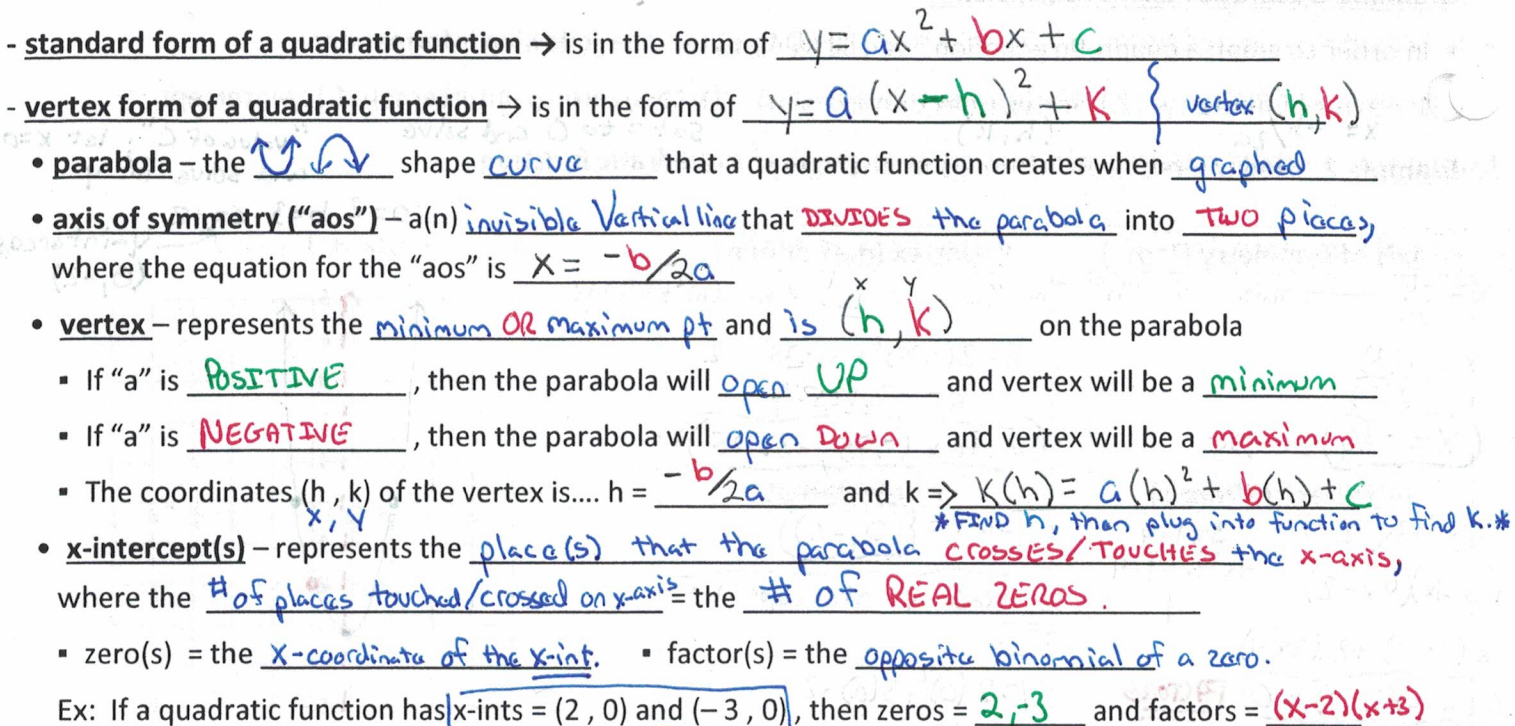 - standard form of a quadratic function → is in the form of y = ax² + bx + c
- vertex form of a quadratic function → is in the form of y = a (x - h)² + k { vertex (h, k)
• parabola – the shape curve that a quadratic function creates when graphed
• axis of symmetry ("aos") – a(n) invisible Vertical line that DIVIDES the parabola into TWO pieces,
where the equation for the "aos" is x = -b/2a
x y
• vertex – represents the minimum OR maximum pt and is (h, k) on the parabola
▪ If "a" is POSITIVE, then the parabola will open UP and vertex will be a minimum
▪ If "a" is NEGATIVE, then the parabola will open DOWN and vertex will be a maximum
▪ The coordinates (h , k) of the vertex is.... h = -b/2a and k => K(h) = a(h)² + b(h) + c
x, y *FIND h, then plug into function to find k.*
• x-intercept(s) – represents the place(s) that the parabola CROSSES/TOUCHES the x-axis,
where the # of places touched/crossed on x-axis = the # of REAL ZEROS.
▪ zero(s) = the x-coordinate of the x-int. ▪ factor(s) = the opposite binomial of a zero.
Ex: If a quadratic function has x-ints = (2 , 0) and (– 3 , 0), then zeros = 2, -3 and factors = (x-2)(x+3)